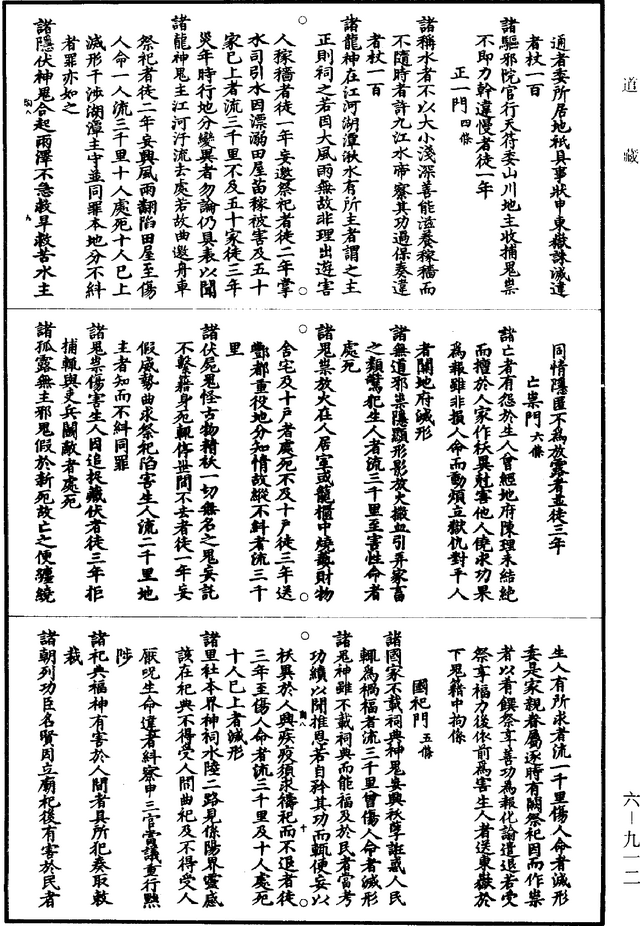 道藏
通者委所居地祇具事狀申東嶽誅滅違
者杖一百
諸驅邪院官行天符委山川地主收捕鬼祟
不即力幹違慢者徒一年
正一門四條
諸稱水者不以大小淺深善能滋養稼穡而
不隨時者許九江水帝察其功過保奏違
者杖一百
諸龍神在江河湖潭湫水有所主者謂之主
正則祠之若因大風雨無故非理出遊害
人稼穡者徒一年妄邀祭祀者徒二年掌
水司引水因漂溺田屋苗稼被害及五十
家已上者流三千里不及五十家徒三年
災年時行地分變異者勿論仍具表以聞
諸龍神鬼主江河汙流去處若故曲邀舟車
祭祀者徒二年妄興風雨翻陷田屋至傷
人命一人流三千里十人處死十人已上
滅形干涉湖潭主守並同罪本地分不糾
者罪亦如之
諸隱伏神鬼合起雨澤不急救旱救苦水主
同情隱匿不為放露者並徒三年
亡祟門六條
諸亡者有怨於生人曾經地府陳理未結絕
而擅於人家作妖異尅害他人僥求功果
為報雖非損人命而動煩立獄仇對平人
者關地府滅形
諸無道邪祟隱顯形影放火撒血引弄家畜
之類驚犯生人者流三千里至害性命者
處死
諸鬼祟放火在人居室或籠櫃中燒爇財物
舍宅及十戶者處死不及十戶徒三年送
酆都重役地分知情故縱不糾者流三千
里
諸伏屍鬼怪古物精妖一切無名之鬼妄託
不繫籍身死輒停世間不去者徒一年妄
假威勢曲求祭祀陷害生人流二千里地
主者知而不糾同罪
諸鬼祟傷害生人因追捉藏伏者徒三年拒
捕輒與吏兵鬭敵者處死
諸孤露無主邪鬼假於新死故亡之便纏繞
生人有所求者流一千里傷人命者滅形
委是家親眷屬逐時有闕祭祀因而作祟
者以肴饌祭享善功為報化諭遣退若受
祭享福力後依前為害生人者送東嶽於
下鬼籍中拘係
國祀門五條
諸國家不載祠典神鬼妄興妖孽誑惑人民
輒為禍福者流三千里曾傷人命者滅形
諸鬼神雖不載祠典而能福及於民者當考
功績以聞推恩若自矜其功而輒便妄以
妖異於人興疾疫須求禱祀而不退者徒
三年至傷人命者流三千里及十人處死
十人已上者滅形
諸里社本界神祠水陸二路見係陽界靈感
該在祀典不得受人間曲祀及不得受人
厭呪生命違者糾察申三官當議重行黜
陟
諸祀典福神有害於人間者具所犯奏取敕
裁
諸朝列功臣名賢因立廟祀後有害於民者
六一九一二